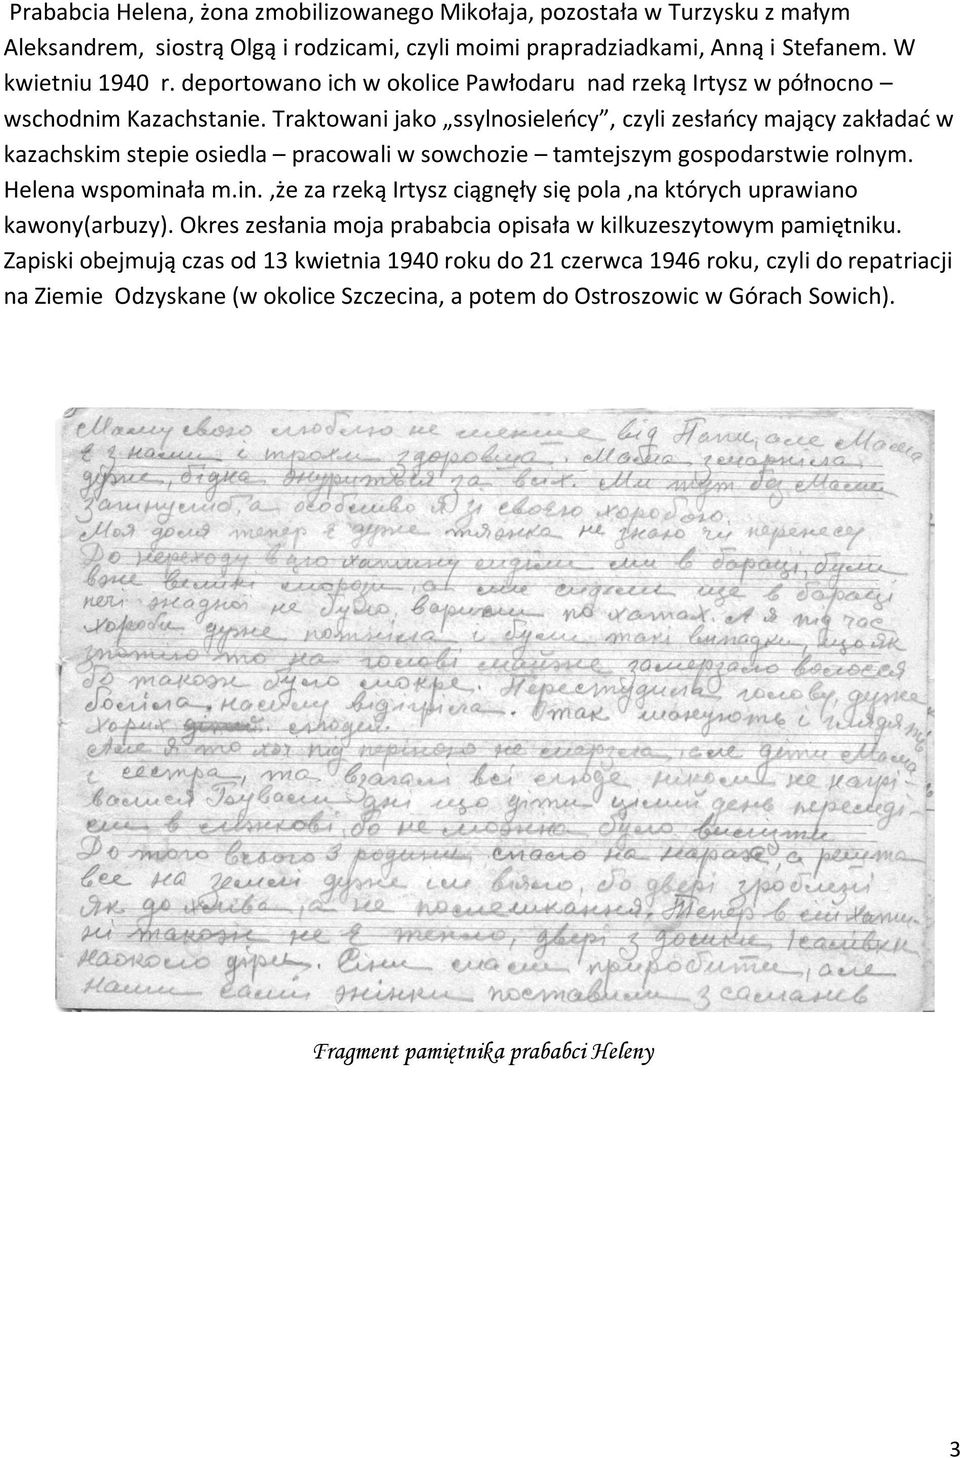 Prababcia Helena, żona zmobilizowanego Mikołaja, pozostała w Turzysku z małym
Aleksandrem, siostrą Olgą i rodzicami, czyli moimi prapradziadkami, Anną i Stefanem. W
kwietniu 1940 r. deportowano ich w okolice Pawłodaru nad rzeką Irtysz w północno –
wschodnim Kazachstanie. Traktowani jako „ssylnosieleńcy”, czyli zesłańcy mający zakładać w
kazachskim stepie osiedla – pracowali w sowchozie – tamtejszym gospodarstwie rolnym.
Helena wspominała m.in. ,że za rzeką Irtysz ciągnęły się pola ,na których uprawiano
kawony(arbuzy). Okres zesłania moja prababcia opisała w kilkuzeszytowym pamiętniku.
Zapiski obejmują czas od 13 kwietnia 1940 roku do 21 czerwca 1946 roku, czyli do repatriacji
na Ziemie Odzyskane (w okolice Szczecina, a potem do Ostroszowic w Górach Sowich).
Маму свою люблю не менше від Папи, але Мама
є з нами і трохи здоровша. Мама змарніла
дуже, бідна журиться за всіх. Ми тут без Мами
загинулиб, а особливо я зі своєю хоробою.
Моя доля тепер є дуже тяжка не знаю чи перенесу
До переходу в цю хатину сиділи ми в бараці, були
вже великі морози, а ми сиділи ще в бараці
печі жадної не було, варили по хатах. А я під час
хороби дуже потніла і були такі випадки, що як
то на голові майже замерзало волосся
бо також було мокре. Перестудила голову, дуже
боліла, насилу відігріла. Отак шанують і глядять
хорих людей.
Але я то хоч під периною не мерзла, але діти Мама
і сестра, та взагалі всі люде ніколи не нагрі-
валися Бували дні що діти цілий день переседі-
ли в ліжкові, бо не можна було вилізти
До того всього 3 родини, спало на нарах, а решта
все на землі дуже їм віяло, бо двері зроблені
як до хліва, а не помешкання. Тепер в сій хати-
ні також не є тепло, двері з дошки, і салівки
наоколо діри. Сіни мали приробити, але
наші самі жінки поставили з саманів
Fragment pamiętnika prababci Heleny
3